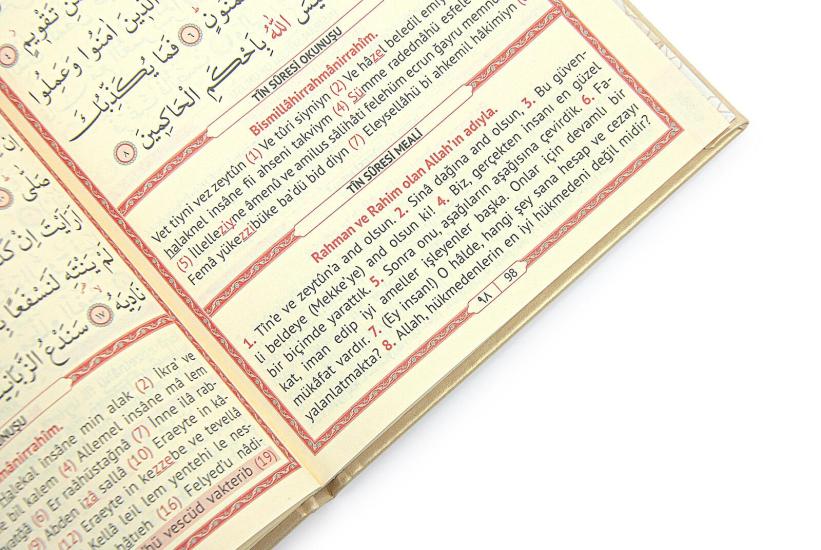 تَقْوِيمٍ ٤
الَّذِينَ اٰمَنُوا وَعَمِلُوا
فَمَا يُكَذِّبُكَ
اللّٰهُ بِاَحْكَمِ الْحَاكِمِينَ ٨
TÎN SÛRESİ OKUNUŞU
Bismillâhirrahmânirrahîm.
Vet tiyni vez zeytûn (1) Ve tûri siyniyn (2) Ve hâzel beledil
halaknel insâne fii ahseni takviym (4) Sümme radednâhü esfele
(5) İllelleziyne âmenû ve amilus sâlihâti felehüm ecrun ğayru memnû
Femâ yükezzibüke ba'dü bid diyn (7) Eleysellâhü bi ahkemil hâkimiyn
TÎN SÛRESİ MEALİ
Rahman ve Rahim olan Allah'ın adıyla.
1. Tîn'e ve zeytûn'a and olsun, 2. Sinâ dağına and olsun, 3. Bu güven-
li beldeye (Mekke'ye) and olsun ki! 4. Biz, gerçekten insanı en güzel
bir biçimde yarattık. 5. Sonra onu, aşağıların aşağısına çevirdik. 6. Fa-
kat, iman edip iyi ameller işleyenler başka. Onlar için devamlı bir
mükâfat vardır. 7. (Ey insan!) O hâlde, hangi şey sana hesap ve cezayı
yalanlatmakta? 8. Allah, hükmedenlerin en iyi hükmedeni değil midir?
٩٨ 98
اَرَاَيْتَ اِنْ
لَمْ يَنْتَهِ لَنَسْفَعًا
نَادِيَهُ ١٧ سَنَدْعُ الزَّبَانِيَةَ
min alak (2) İkra' ve
Halekal insâne
bil kalem (4) Allemel insâne mâ lem
(6) Er raâhüstağnâ (7) İnne ilâ rab-
(9) Abden izâ sallâ (10) Eraeyte in kâ-
(12) Eraeyte in kezzebe ve tevellâ
Kellâ leil lem yentehi le nes-
hâtıeh (16) Felyed'u nâdi-
vescüd vakterib (19)